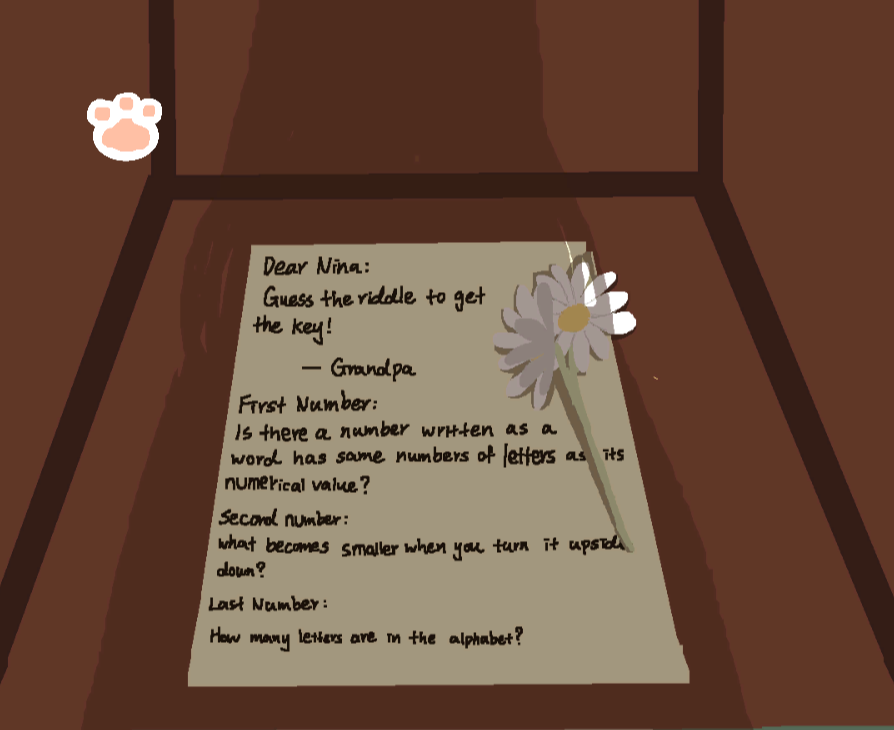 Dear Nina:
Guess the riddle to get
the key!
— Grandpa
First Number:
Is there a number written as a
word has same numbers of letters as its
numerical value?
Second number:
what becomes smaller when you turn it upside
down?
Last Number:
How many letters are in the alphabet?